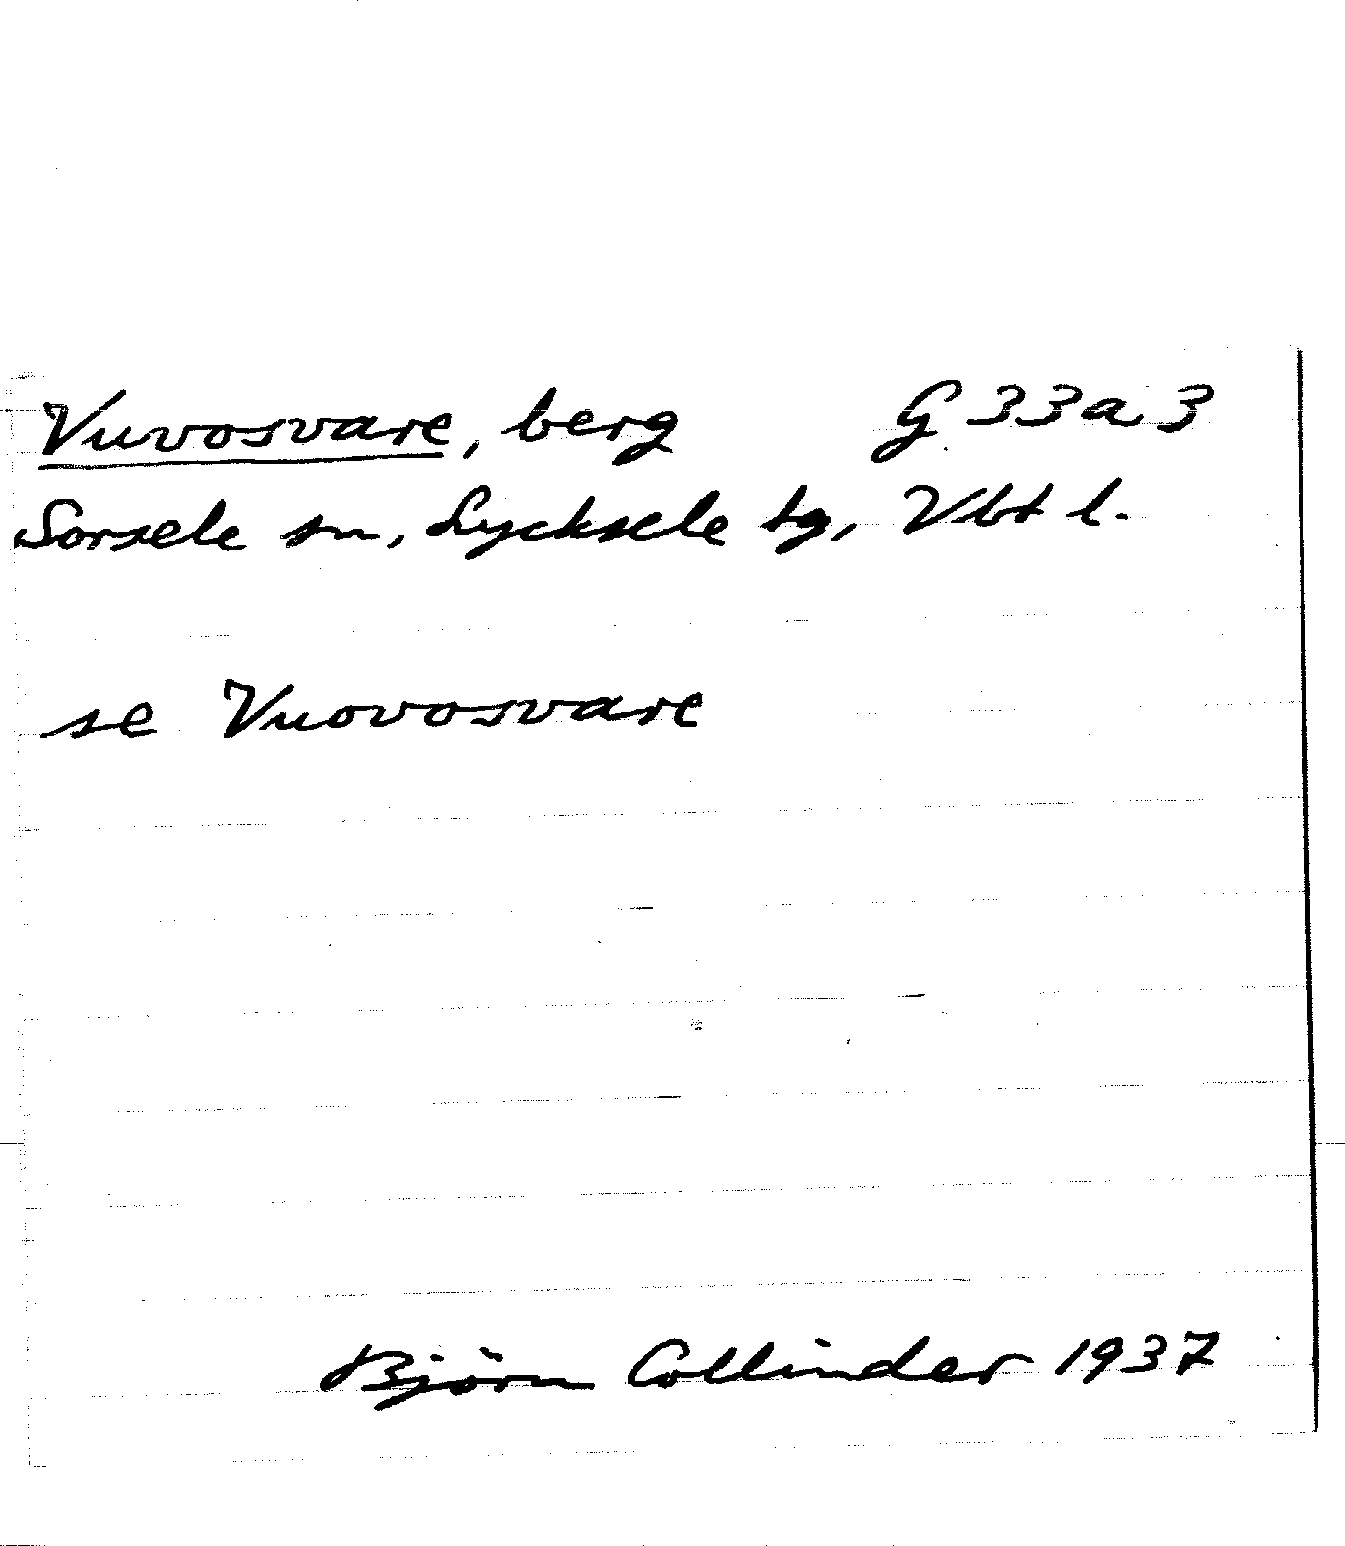 Vuvosvare, berg G 33a 3
Sorsele sn, Lycksele tg, Vbt l.
se Vuovosvare
Björn Collinder 1937